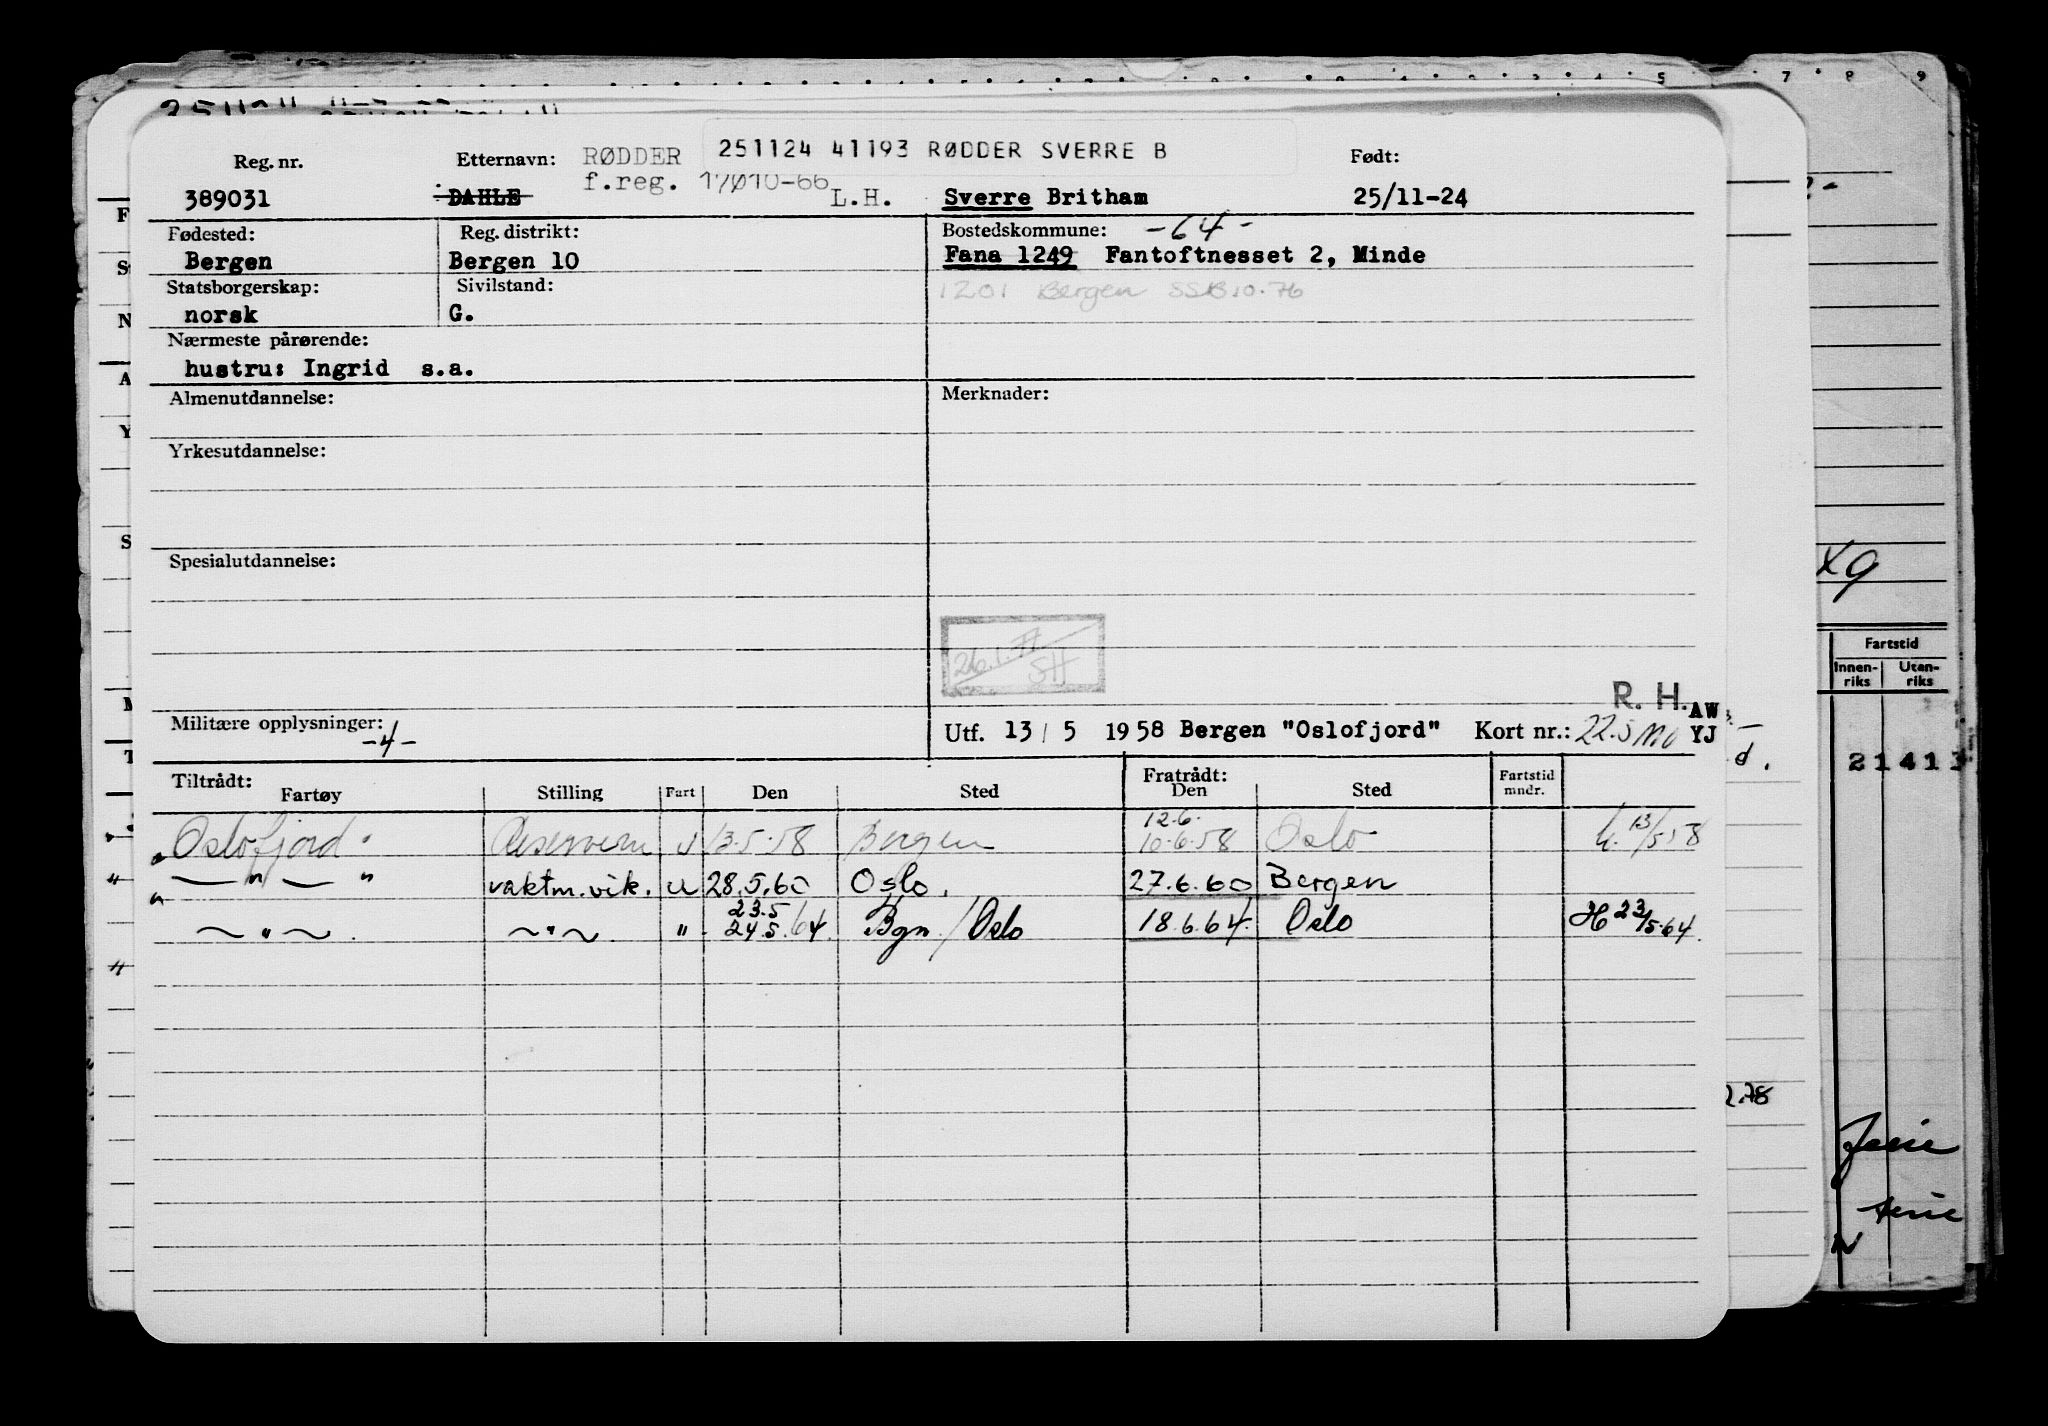 Reg. nr. Etternavn: RØDDER 251124 41193 RØDDER SVERRE B Født:
f.reg. 17010-66
389031 DAHLE L.H. Sverre Britham 25/11-24
Fødested: Reg. distrikt: Bostedskommune: -64-
Bergen Bergen 10 Fana 1249 Fantoftnesset 2, Minde
Statsborgerskap: Sivilstand: 1201 Bergen SSB 10.76
norsk G.
Nærmeste pårørende:
hustru: Ingrid s.a.
Almenutdannelse: Merknader:
Yrkesutdannelse:
Spesialutdannelse:
26.1.77
SH
R. H.
AW
Militære opplysninger: -4- Utf. 13/5 1958 Bergen "Oslofjord" Kort nr.: YJ
Tiltrådt: Fratrådt:
Fartøy Stilling Fart Den Sted Den Sted Fartstid mndr.
12.6.
Oslofjord 13.5.58 Bergen 10.6.58 Oslo 13/5 58
— " — " vaktm. vik. u 28.5.60 Oslo. 27.6.60 Bergen
23.5
~ " ~ . ~ " ~ . " 24.5.64. Bgn / Oslo 18.6.64. Oslo H 23/5.64.
5 7 8 9
Fartstid
Innen-riks Uten-riks
d.
21413
2.78